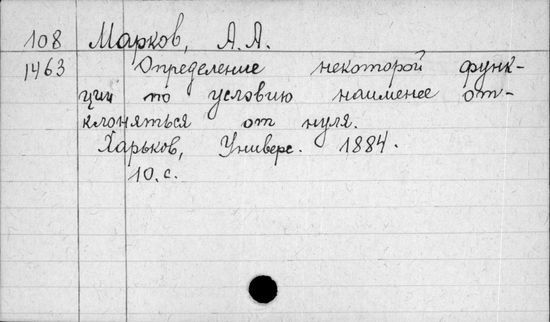 108 Марков, А.А.
1463 Определение некоторой функ-
ции по условию наименее от-
клоняться от нуля.
Харьков, Универс. 1884.
10.с.